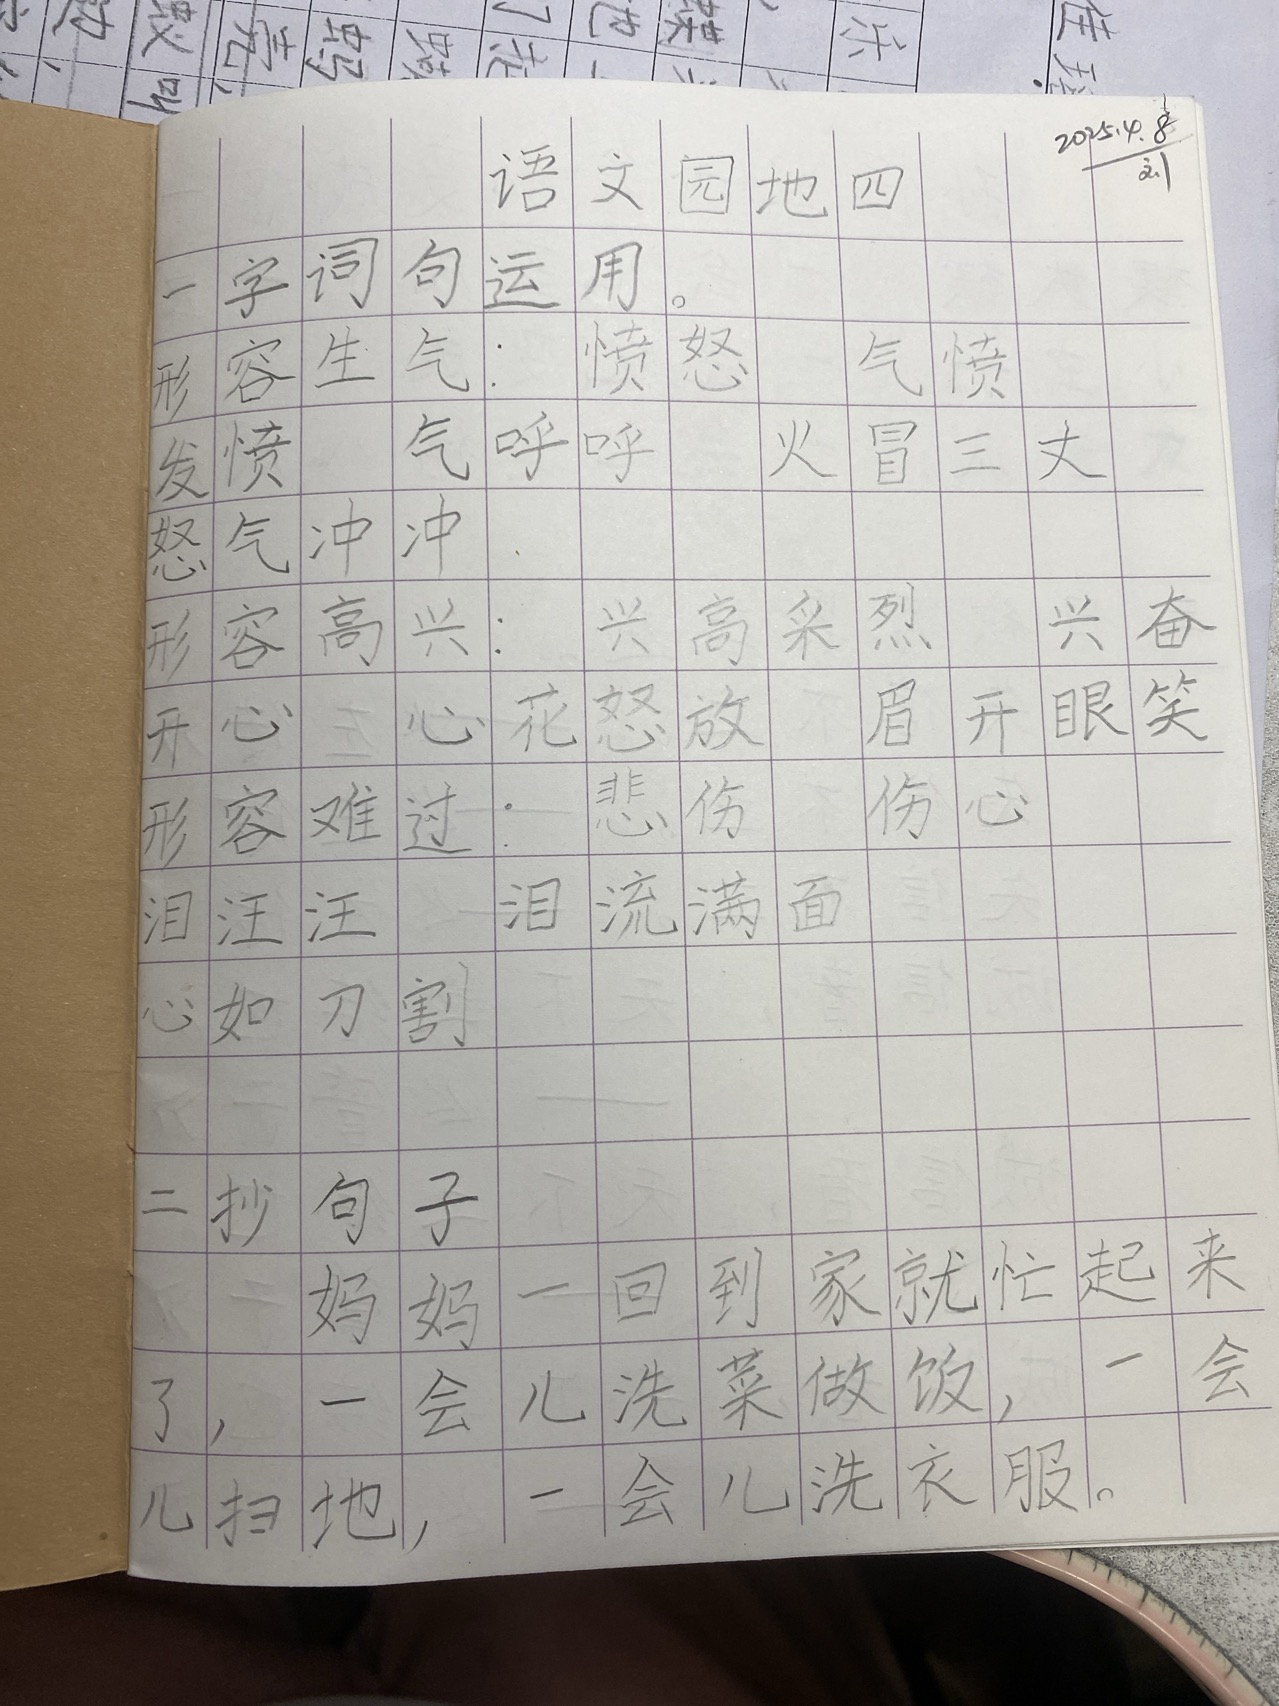 2025.4.8
语文园地四
一字词句运用。
形容生气：愤怒 气愤
发愤 气呼呼 火冒三丈
怒气冲冲
形容高兴：兴高采烈 兴奋
开心 心花怒放 眉开眼笑
形容难过：悲伤 伤心
泪汪汪 泪流满面
心如刀割
二抄句子
妈妈一回到家就忙起来
了，一会儿洗菜做饭，一会
儿扫地，一会儿洗衣服。